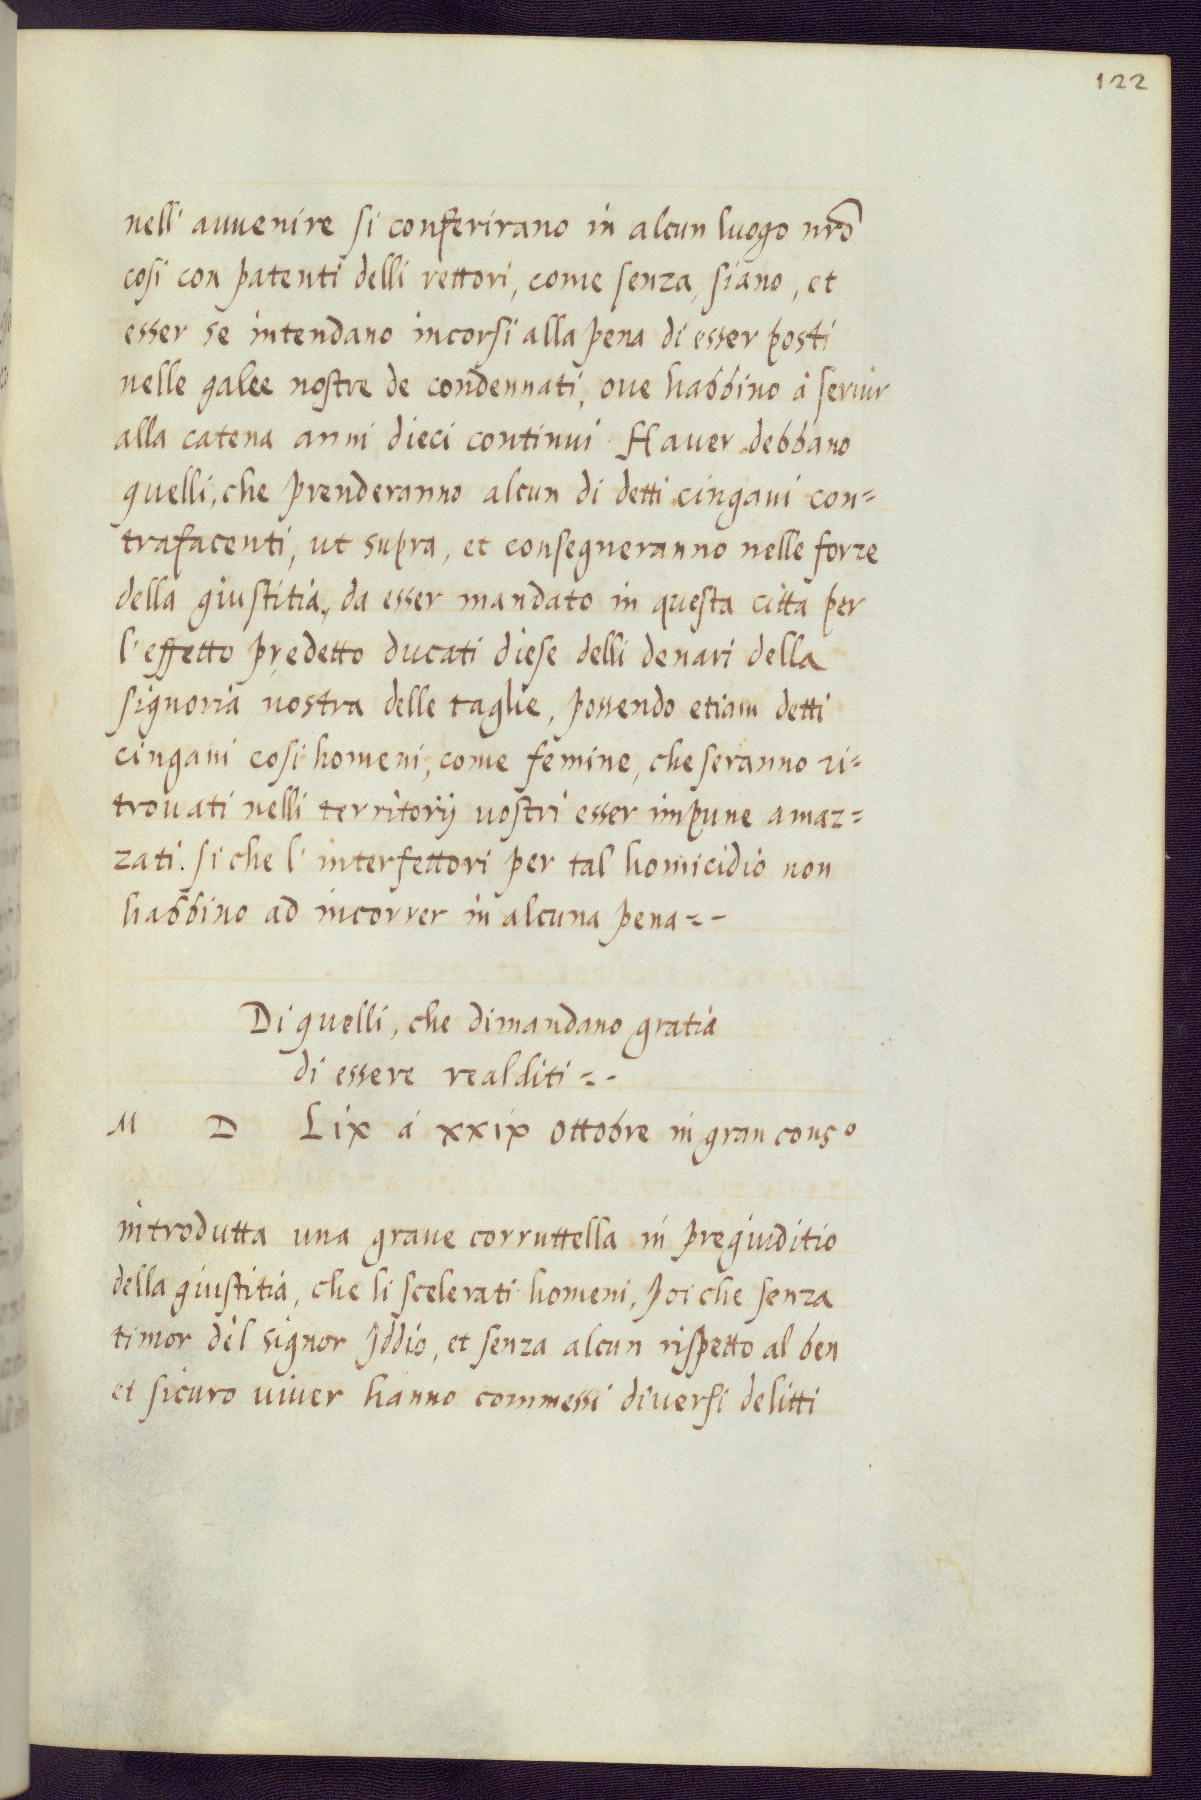 122
nell' auuenire si conferirano in alcun luogo nrõ
cosi con patenti delli rettori, come senza, siano, et
esser se intendano incorsi alla pena di esser posti
nelle galee nostre de condennati, oue habbino à seruir
alla catena anni dieci continui. Hauer debbano
quelli, che prenderanno alcun di detti cingani con=
trafacenti, ut supra, et consegneranno nelle forze
della giustitia, da esser mandato in questa citta per
l'effetto predetto ducati diese delli denari della
signoria nostra delle taglie, possendo etiam detti
cingani cosi homeni, come femine, che seranno ri=
trouati nelli territorij nostri esser impune amaz=
zati. si che l' interfettori per tal homicidio non
habbino ad incorrer in alcuna pena=-
Di quelli, che dimandano gratia
di essere realditi=-
M D Lix à xxix ottobre in gran cons.º
introdutta una graue corruttella in pregiuditio
della giustitia, che li scelerati homeni, poi che senza
timor del signor Iddio, et senza alcun rispetto al ben
et sicuro viuer hanno commessi diuersi delitti